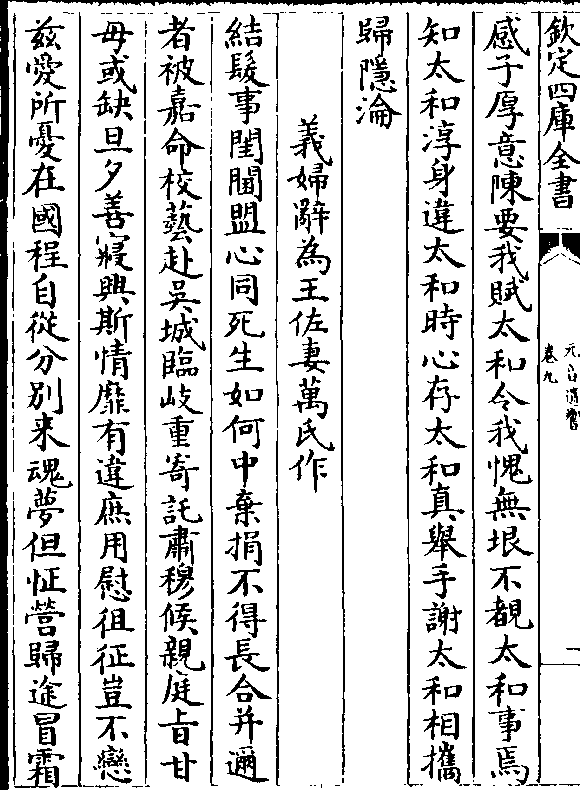 欽定四庫全書
卷九
感子厚意陳要我賦太和令我愧無垠不覩太和事焉
知太和淳身違太和時心存太和真舉手謝太和相攜
歸隱淪
義婦辭為王佐妻萬氏作
結髮事閨閫盟心同死生如何中棄捐不得長合并邇
者被嘉命校藝赴吳城臨岐重寄託肅穆候親庭旨甘
毋或缺旦夕善寢興斯情靡有違庶用慰徂征豈不戀
茲愛所憂在國程自從分別来魂夢但怔營歸途冒霜